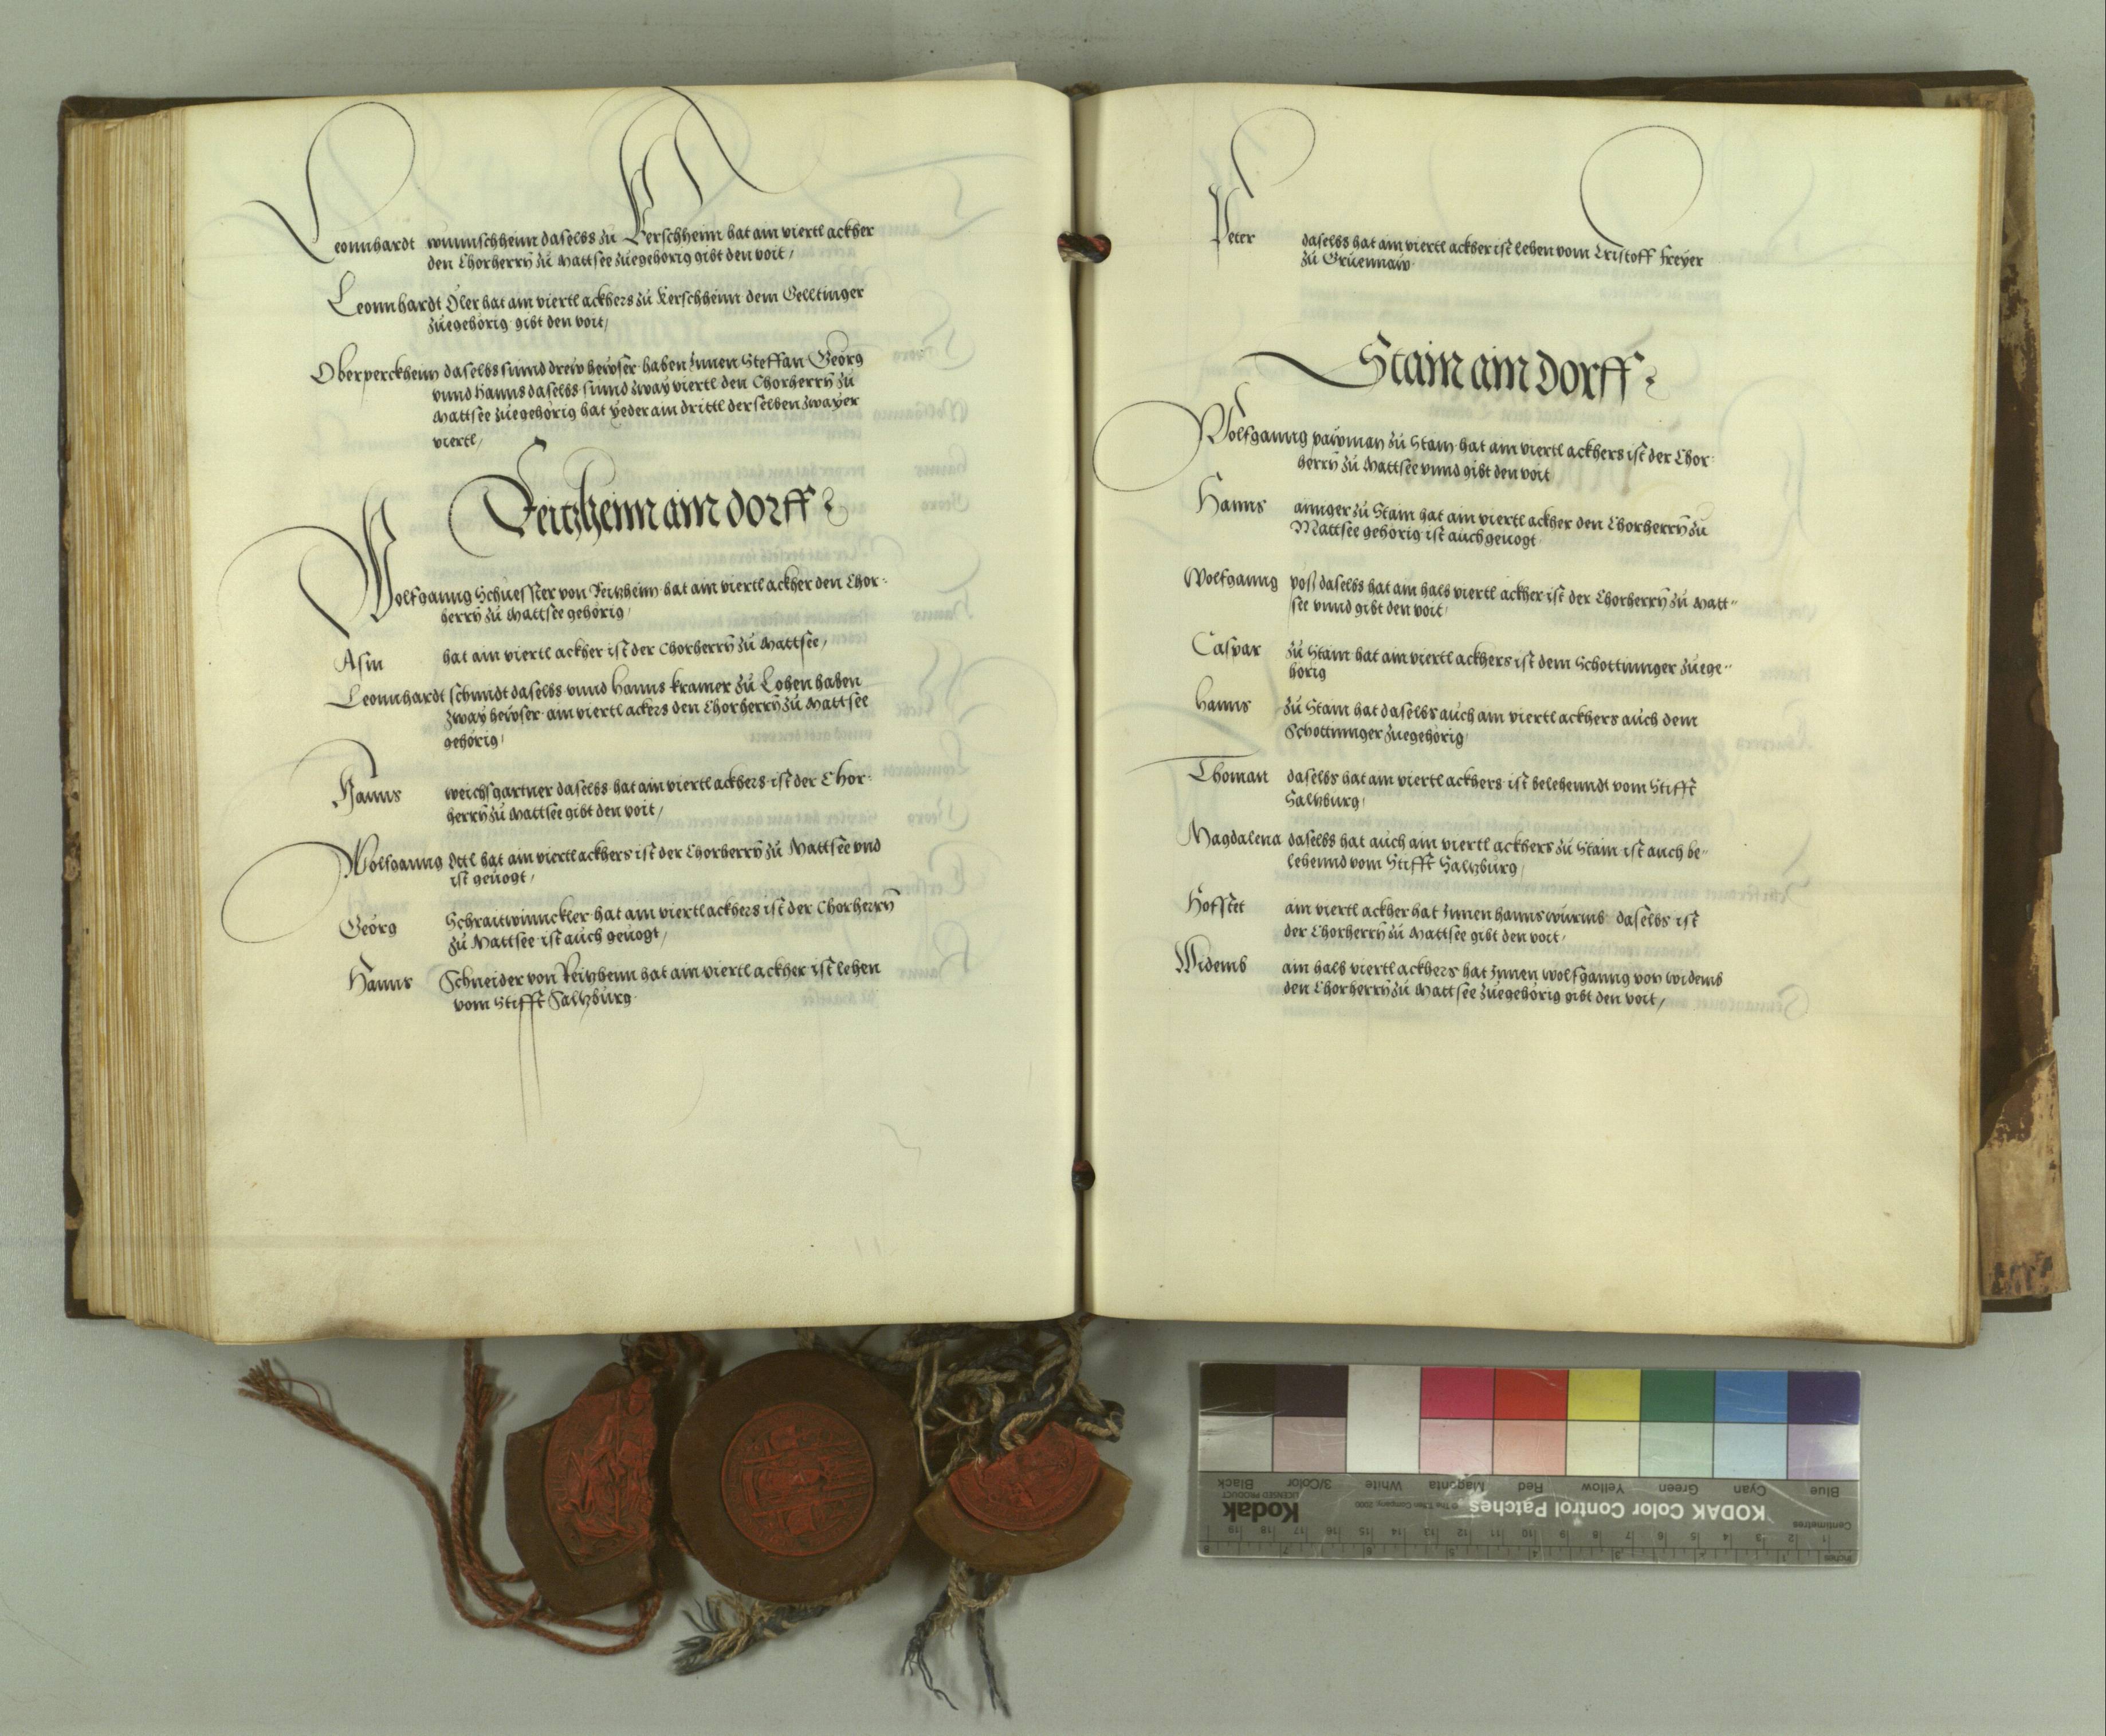 Leonnhardt wunschheim daselbs zu Kerschheim hat ain viertl ackher
den Chorherrñ zu Mattsee zuegehörig gibt den voit /
Leonnhardt Öler hat ain viertl ackhers zu Kerschheim dem Gelltinger
zuegehörig gibt den voit /
Oberperckheim daselbs sinnd drew hewser haben Innen Steffan Georg
vnnd Hanns daselbs sinnd zway viertl den Chorherrñ zu
Mattsee zuegehörig hat yeder ain drittl derselben zwayer
viertl /
Feitzheim ain dorff
Wolfganng Schuesster von Feitzheim hat ain viertl ackher den Chor-
herrñ zu Mattsee gehörig /
Asm hat ain viertl ackher ist der Chorherrñ zu Mattsee /
Leonnhardt schmidt daselbs vnnd Hanns kramer zu Lohen haben
zway hewser ain viertl ackers den Chorherrñ zu Mattsee
gehörig /
Hanns weichsgartner daselbs hat ain viertl ackhers ist der Chor-
herrñ zu Mattsee gibt den voit /
Wolfganng Ottl hat ain viertl ackhers ist der Chorherrñ zu Mattsee vnd
ist geuogt /
Georg Schraitwinnckler hat ain viertl ackhers ist der Chorherrñ
zu Mattsee ist auch geuogt /
Hanns Schneider von Feitzheim hat ain viertl ackher ist lehen
vom Stifft Saltzburg
Peter daselbs hat ain viertl ackher ist lehen vom Cristoff freyer
zu Gruennaw
Stain ain dorff
Wolfganng pawman zu Stain hat ain viertl ackhers ist der Chor-
herrñ zu Mattsee vnnd gibt den voit
Hanns ainiger zu Stain hat ain viertl ackher den Chorherrñ zu
Mattsee gehörig ist auch geuogt
Wolfganng posß daselbs hat ain halb viertl ackher ist der Chorherrñ zu Matt-
see vnnd gibt den voit /
Caspar zu Stain hat ain viertl ackhers ist dem Schottinnger zuege-
hörig
hanns zu Stain hat daselbs auch ain viertl ackhers auch dem
Schottinnger zuegehörig
Thoman daselbs hat ain viertl ackhers ist belehenndt vom Stifft
Saltzburg /
Magdalena daselbs hat auch ain viertl ackhers zu Stain ist auch be-
lehennd vom Stifft Saltzburg /
Hofstet ain viertl ackher hat Innen hanns wurmb daselbs ist
der Chorherrñ zu Mattsee gibt den voit /
Widemb ain halb viertl ackhers hat Innen wolfganng von widemb
den Chorherrñ zu Mattsee zuegehörig gibt den voit /
Blue Cyan Green Yellow Red Magenta White 3/Color Black
KODAK Color Control Patches © The Tiffen Company, 2000 Kodak
LICENSED PRODUCT
Centimetres 1 2 3 4 5 6 7 8 9 10 11 12 13 14 15 16 17 18 19
Inches